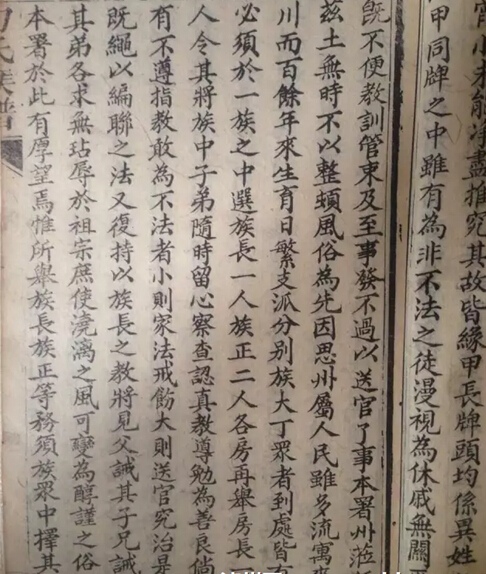 宵小未能淨盡推究其故皆緣甲長牌頭均係異姓
甲同牌之中雖有為非不法之徒漫視為休戚無關
既不便教訓管束及至事發不過以送官了事本署州蒞
茲土無時不以整頓風俗為先因思州屬人民雖多流寓來
川而百餘年來生育日繁支派分别族大丁眾者到處皆有
必須於一族之中選族長一人族正二人各房再舉房長一
人令其將族中子弟隨時留心察查認真教導勉為善良倘
有不遵指教敢為不法者小則家法戒飭大則送官究治是
既繩以編聯之法又復持以族長之教將見父誡其子兄誡
其弟各求無玷辱於祖宗庶使澆漓之風可變為醇謹之俗
本署於此有厚望焉惟所舉族長族正等務須族眾中擇其
氏族譜